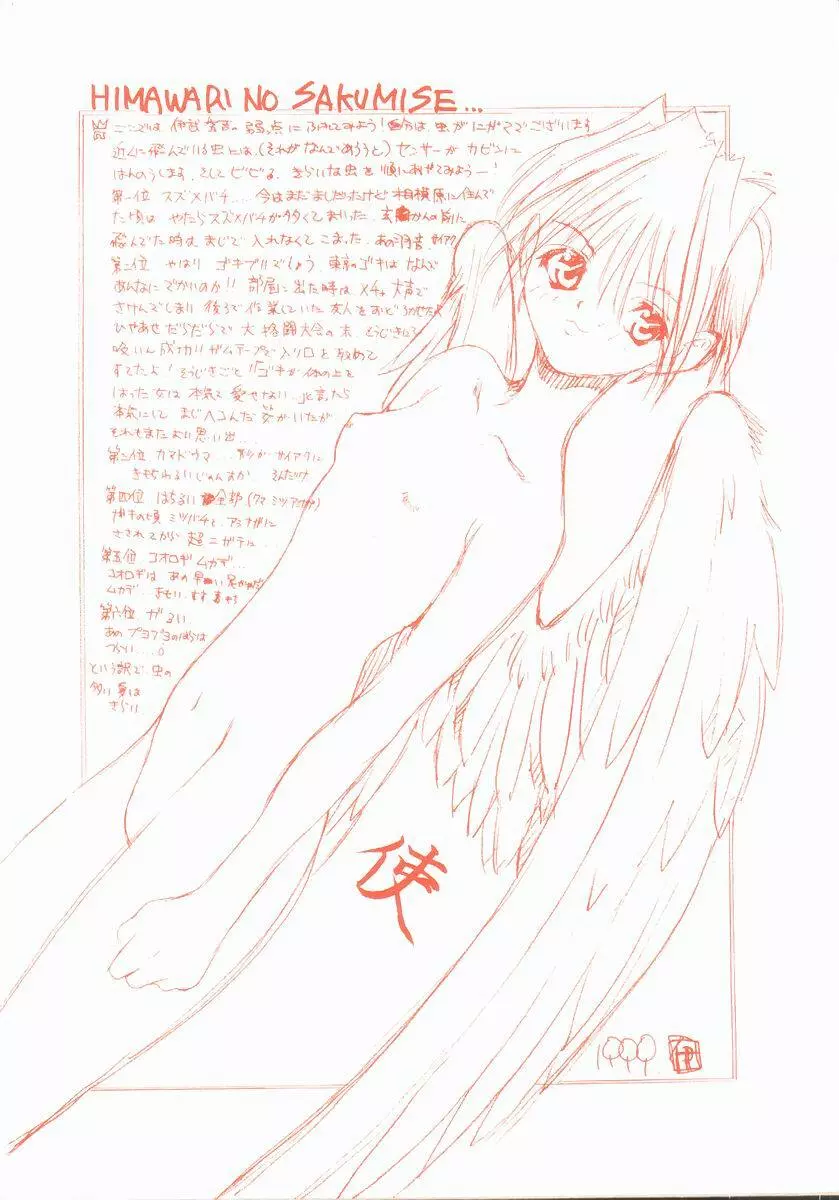 HIMAWARI NO SAKUMISE...
ここでは 伊 の弱点に ふれてみよう! は、虫がにがてでございます
近くに飛んでいる虫には、(それがなんであろうと) センサーが カビンに
はんのうします。そして ビビる。きらいな虫を 順にあげてみよう ー!
第一位 スズメバチ... 今はまだましだったけど 相模原に住んで
た頃は やたらスズメバチが多くてまいった。玄かんの前に
飛んでた時は まじで 入れなくて こまった。あの羽音、サイアク
第二位 やはり ゴキブリでしょう。東京のゴキは なんで
あんなにでかいのか!! 部屋に出た時は メチャ 大声で
さけんでしまい 後ろで作業していた 友人を おどろかせた
ひやあせ だらだらで 大格闘大会の末、そうじきに
吸いこみ成功!! ガムテープで入り口を 攻めて
すてたよ! そうじきごと!!「ゴキが 体の上を
はった女は 本気で 愛せない。」と言ったら
本気にして まじヘコんだ 女がいたが
それもまたよい思い出....
第三位 カマドウマ... サイアクに
きもちわるいじゃんすか それだけ
第四位 はちるい 全部。(クマ ミツ アシナガ)
ガキの頃 ミツバチと、アシナガに
さされてから 超ニガテに...
第五位 コオロギ ムカデ...
コオロギは あの 早い 足がだめ
ムカデ...
第六位 ガるい
あの プヨプヨのはらは
つらい.....
という訳で、虫の
多い夏は
きらい
使
1999